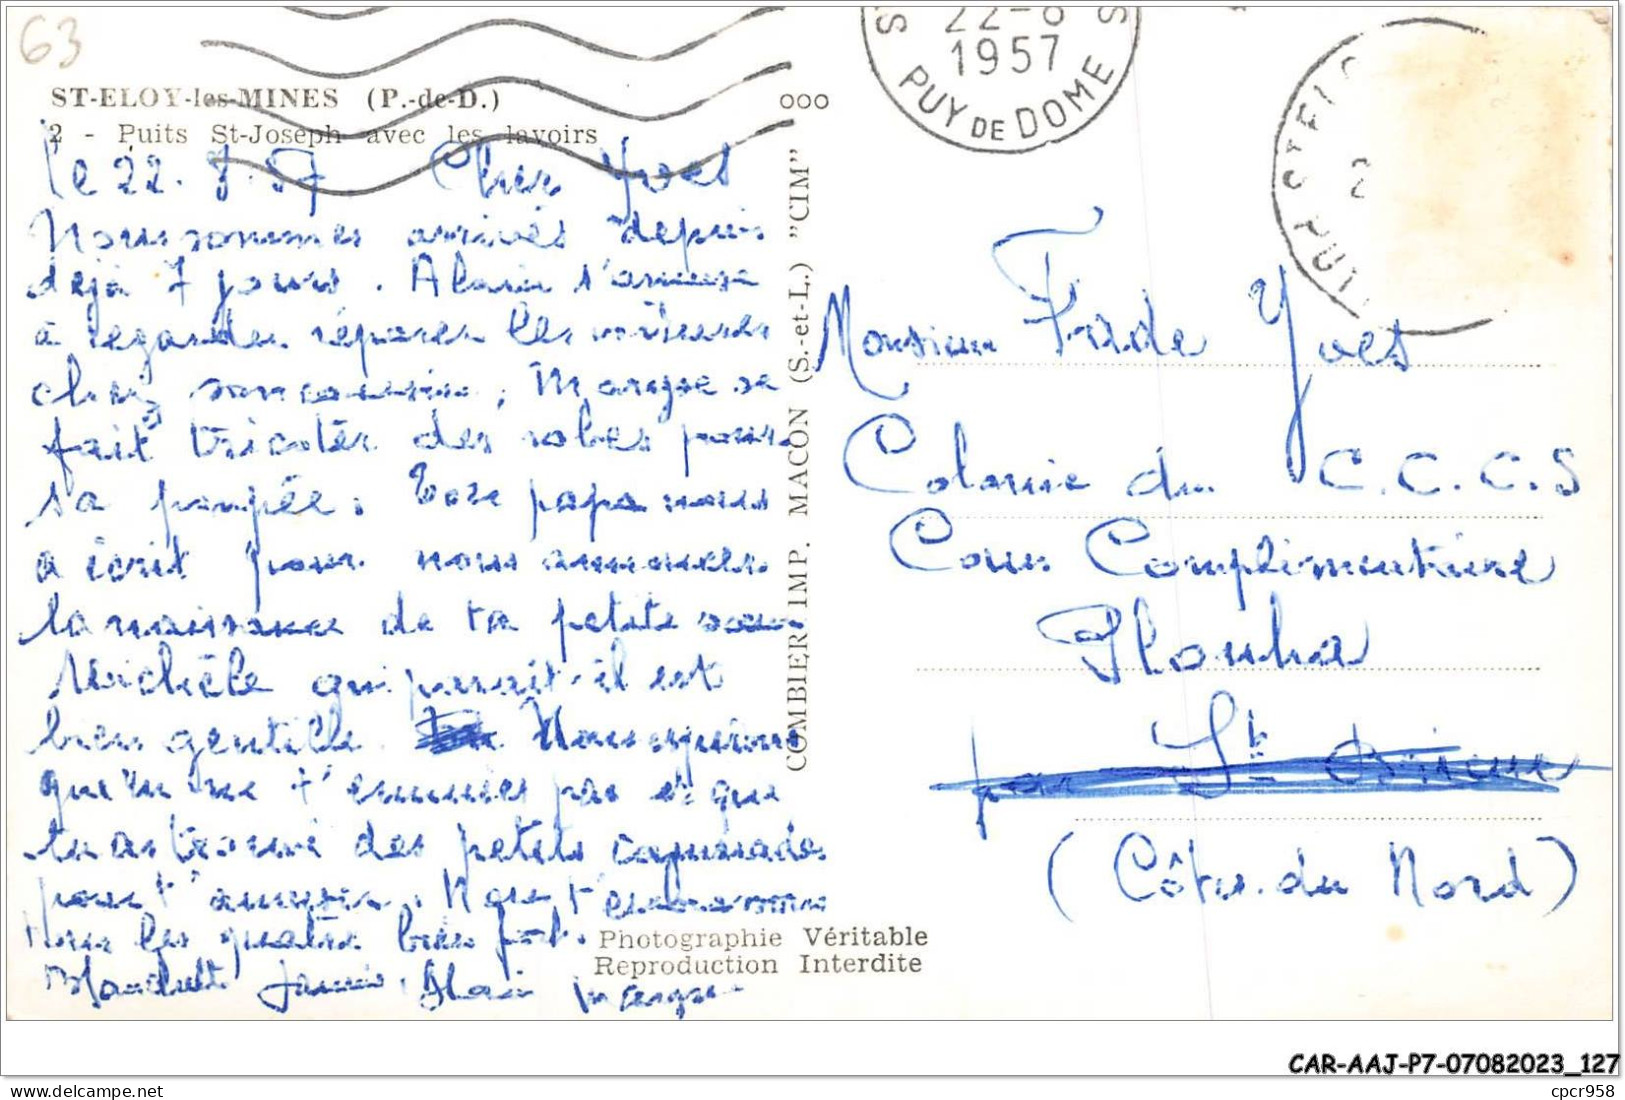 63
ST-ELOY-les-MINES (P.-de-D.)
2 - Puits St-Joseph avec les lavoirs
22-8
1957
PUY DE DOME
ooo
le 22.8.57 Cher Yves
Nous sommes arrivés depuis
déjà 7 jours. Alain s'amuse
à regarder réparer les voitures
chez son cousin, Maryse se
fait tricoter des robes pour
sa poupée. Ton papa nous
a écrit pour nous annoncer
la naissance de ta petite soeur
Michèle qui paraît-il est
bien gentille. Nous espérons
que tu ne t'ennuies pas et que
tu as trouvé des petits camarades
pour t'amuser. Nous t'embrassons
tous les quatre bien fort.
Janine Alain Maryse
COMBIER IMP. MACON (S.-et-L.) "CIM"
Photographie Véritable
Reproduction Interdite
Monsieur Yves
Colonie du C.C.C.S
Cours Complémentaire
Plouha
par St Brieuc
(Côtes.du Nord)
CAR-AAJ-P7-07082023_127
cpcr958